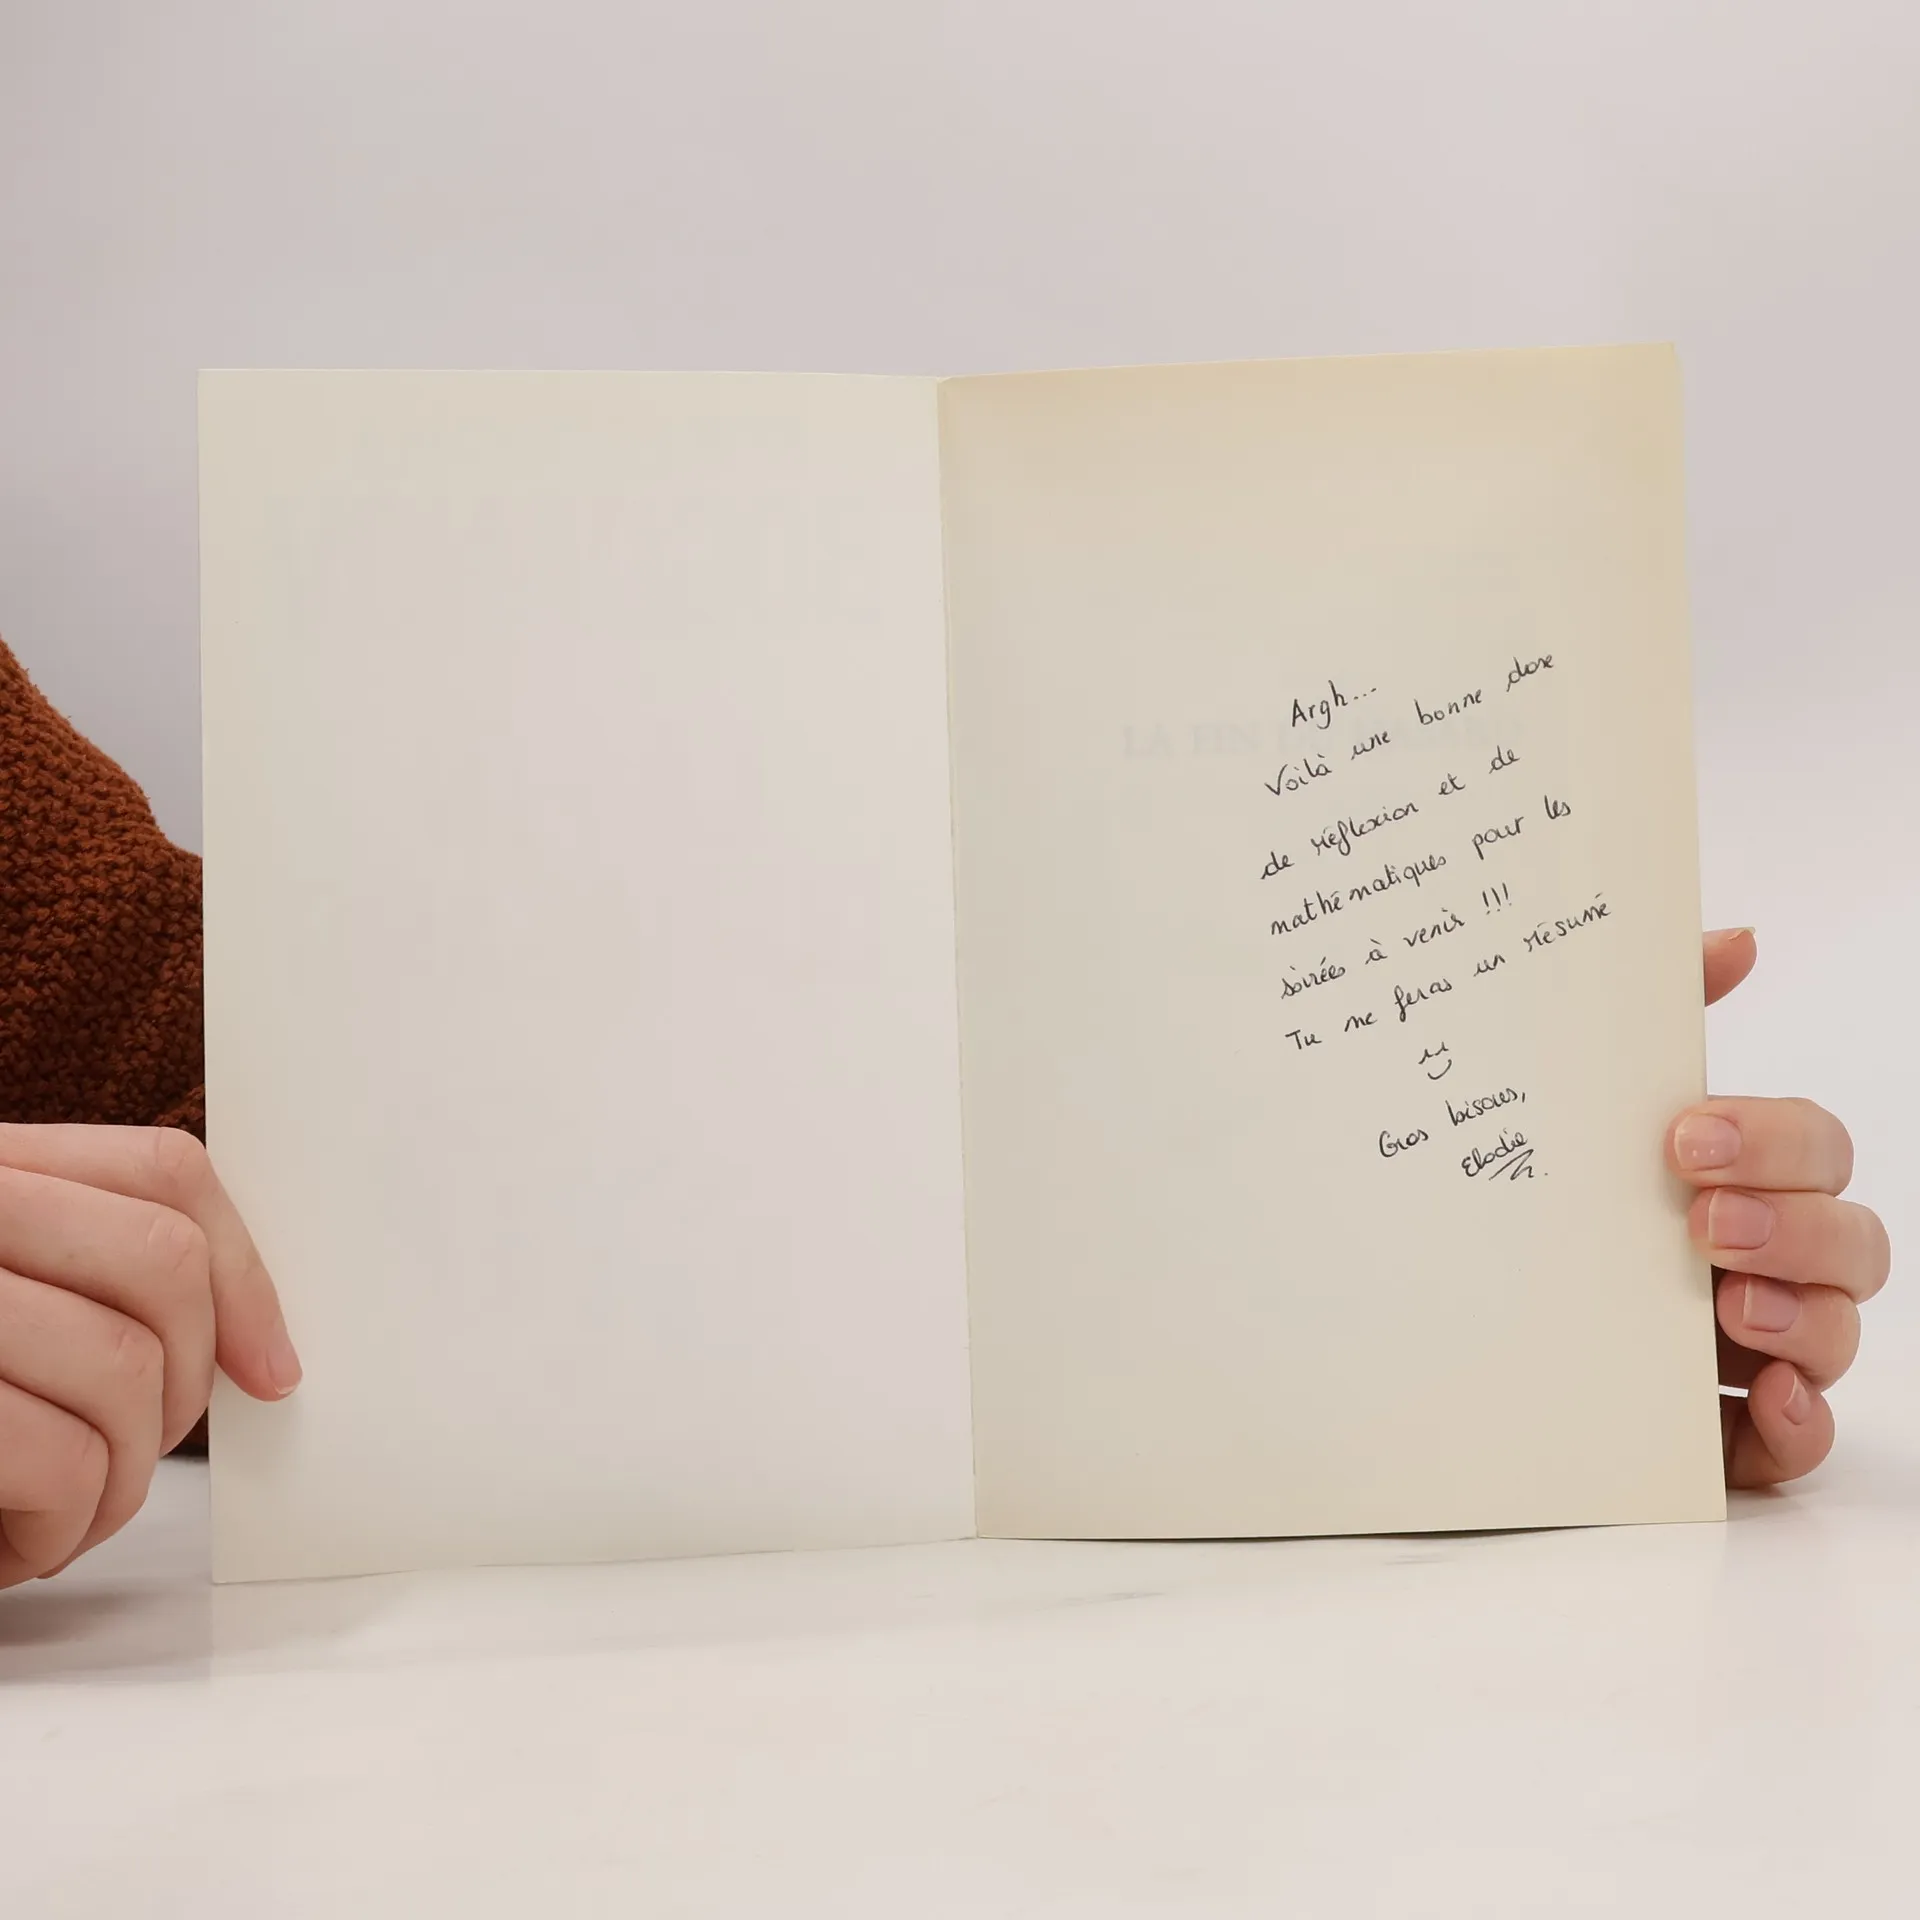 Argh...
Voilà une bonne dose
de réflexion et de
mathématiques pour les
soirées à venir !!!
Tu me feras un résumé
Gros bisous,
Elodie
LA FIN